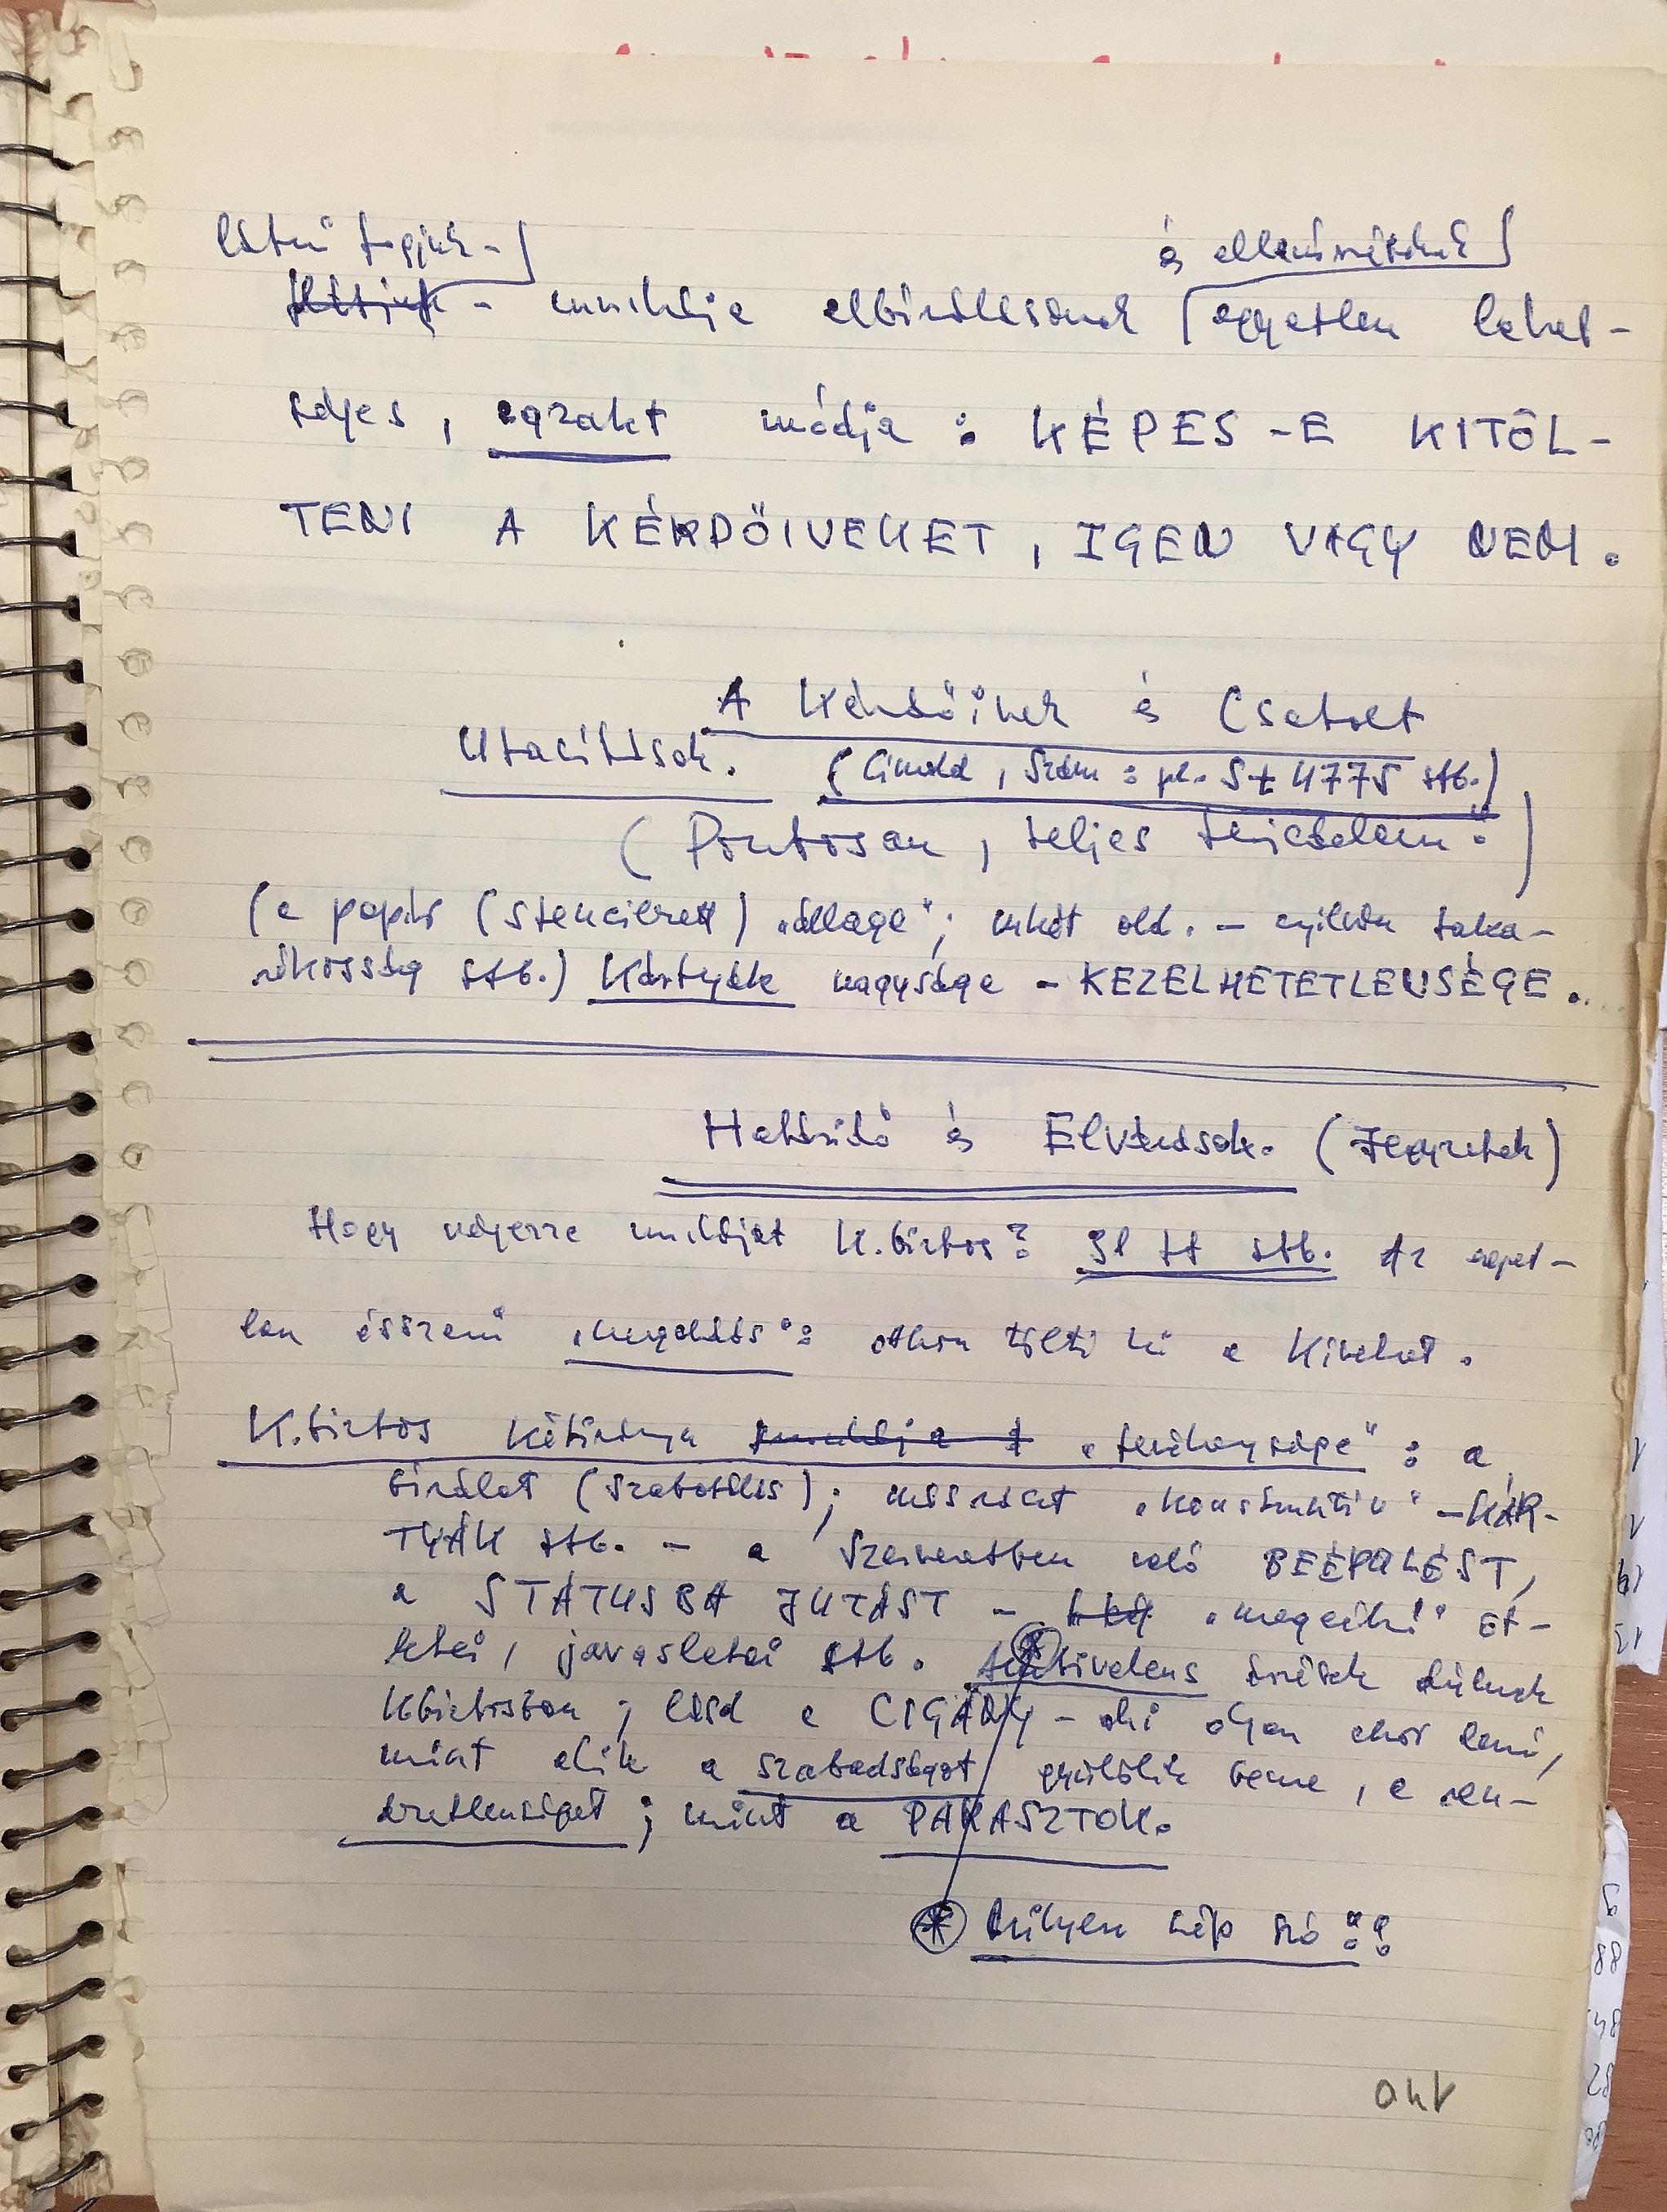 látni fogjuk -
és ellenőrzésének
- munkája elbírálásának egyetlen lehet-
séges, egzakt módja : KÉPES-E KITÖL-
TENI A KÉRDŐIVEKET, IGEN VAGY NEM.
A Kérdőívek és Csatolt
Utasítások. (Címold, Szám : pl. St 4775 stb.)
(Pontosan, teljes terjedelem!)
(a papír (stencilezett) „állaga"; két old. - nyilván taka-
rékosság stb.) Kártyák nagysága - KEZELHETETLENSÉGE.
Határidő és Elvárások. (Jegyzetek)
Hogy végezze munkáját K.biztos? stb. Az egyet-
len ésszerű „megoldás": otthon tölti ki a Kíveket.
K.biztos kétirányú „tevékenysége" : a
bírálat (szabotálás); másrészt „konstruktív" - KÁR-
TYÁK stb. - a szervezetben való BEÉPÜLÉST,
a STÁTUSBA JUTÁST - „megcélzó" öt-
letei, javaslatai stb. Ambivalens érzések dúlnak
Kbiztosban ; lásd a CIGÁNY - aki olyan akar lenni,
mint akik a szabadságot gyűlölik benne, a ren-
dezetlenséget ; mint a PARASZTOK.
* Milyen szép szó !!
140